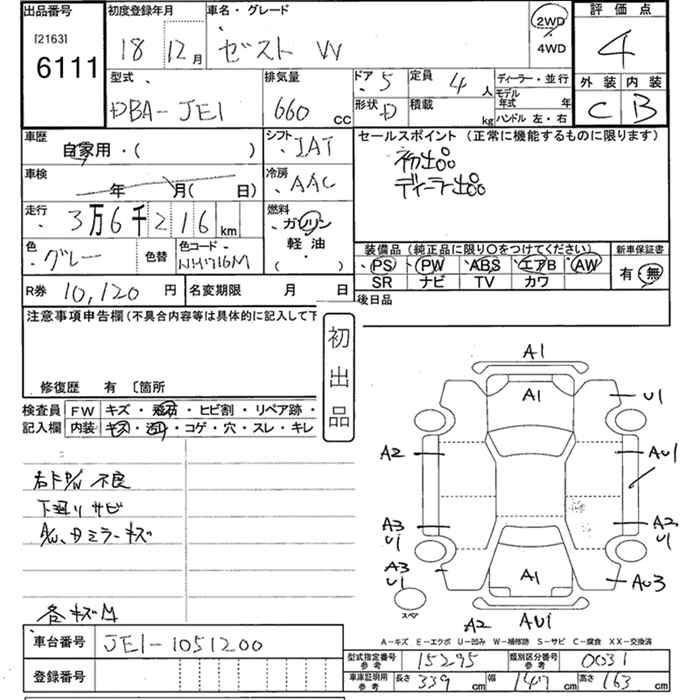 出品番号
[2163]
6111
初度登録年月
18 12月
車名・グレード
ゼスト W
2WD
4WD
評価点
4
外装 内装
C B
型式
DBA-JE1
排気量
660 CC
ドア 5
形状 D
定員 4 人
積載 kg
ディーラー・並行
モデル年式 年
ハンドル 左・右
車歴
自家用・( )
車検
年 月( 日)
走行
3万6千216 km
色
グレー
色替
色コード
NH716M
シフト IAT
冷房 AAC
燃料
ガソリン
軽油
( )
セールスポイント (正常に機能するものに限ります)
初出品
ディーラー出品
装備品(純正品に限り○をつけてください)
PS PW ABS エアB AW
SR ナビ TV カワ
新車保証書
有・無
後日品
R券 10,120 円
名変期限 月 日
注意事項申告欄(不具合内容等は具体的に記入して下
修復歴 有 〔箇所
初出品
検査員記入欄
FW キズ・飛石・ヒビ割・リペア跡・
内装 キズ・汚れ・コゲ・穴・スレ・キレ
右FP/W不良
下廻りサビ
A/W、Dミラーキズ
各キズM
A1
A1
U1
A2
AU1
A3
U1
A2
U1
A3
U1
スペア
A1
AU3
A2
AU1
A-キズ E-エクボ U-凹み W-補修跡 S-サビ C-腐食 XX-交換済
車台番号 JE1-1051200
登録番号
型式指定番号参考 15295
類別区分番号参考 0031
車庫証明用参考 長さ 339 cm 幅 147 cm 高さ 163 cm